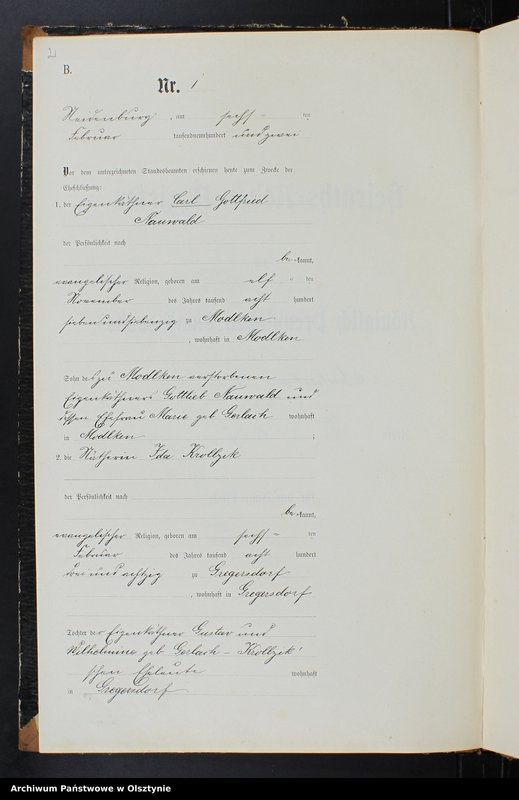 B.
Nr. 1
Neidenburg, am sechs ten
Februar tausendneunhundert und zwei
Vor dem unterzeichneten Standesbeamten erschienen heute zum Zwecke der
Eheschließung:
1. der Eigenkäthner Carl Gottfried
Nauwald
der Persönlichkeit nach
be kannt,
evangelischer Religion, geboren am elf ten
November des Jahres tausend acht hundert
siebenundsiebenzig zu Modlken
, wohnhaft in Modlken
Sohn des zu Modlken verstorbenen
Eigenkäthners Gottlieb Nauwald und
dessen Ehefrau Marie geb Gerlach wohnhaft
in Modlken ;
2. die Käthnerin Ida Krollzik
der Persönlichkeit nach
be kannt,
evangelischer Religion, geboren am sechs ten
Februar des Jahres tausend acht hundert
drei und achtzig zu Gregersdorf
, wohnhaft in Gregersdorf
Tochter der Eigenkäthner Gustav und
Wilhelmine geb. Gerlach - Krollzik'
schen Eheleute wohnhaft
in Gregersdorf
Archiwum Państwowe w Olsztynie